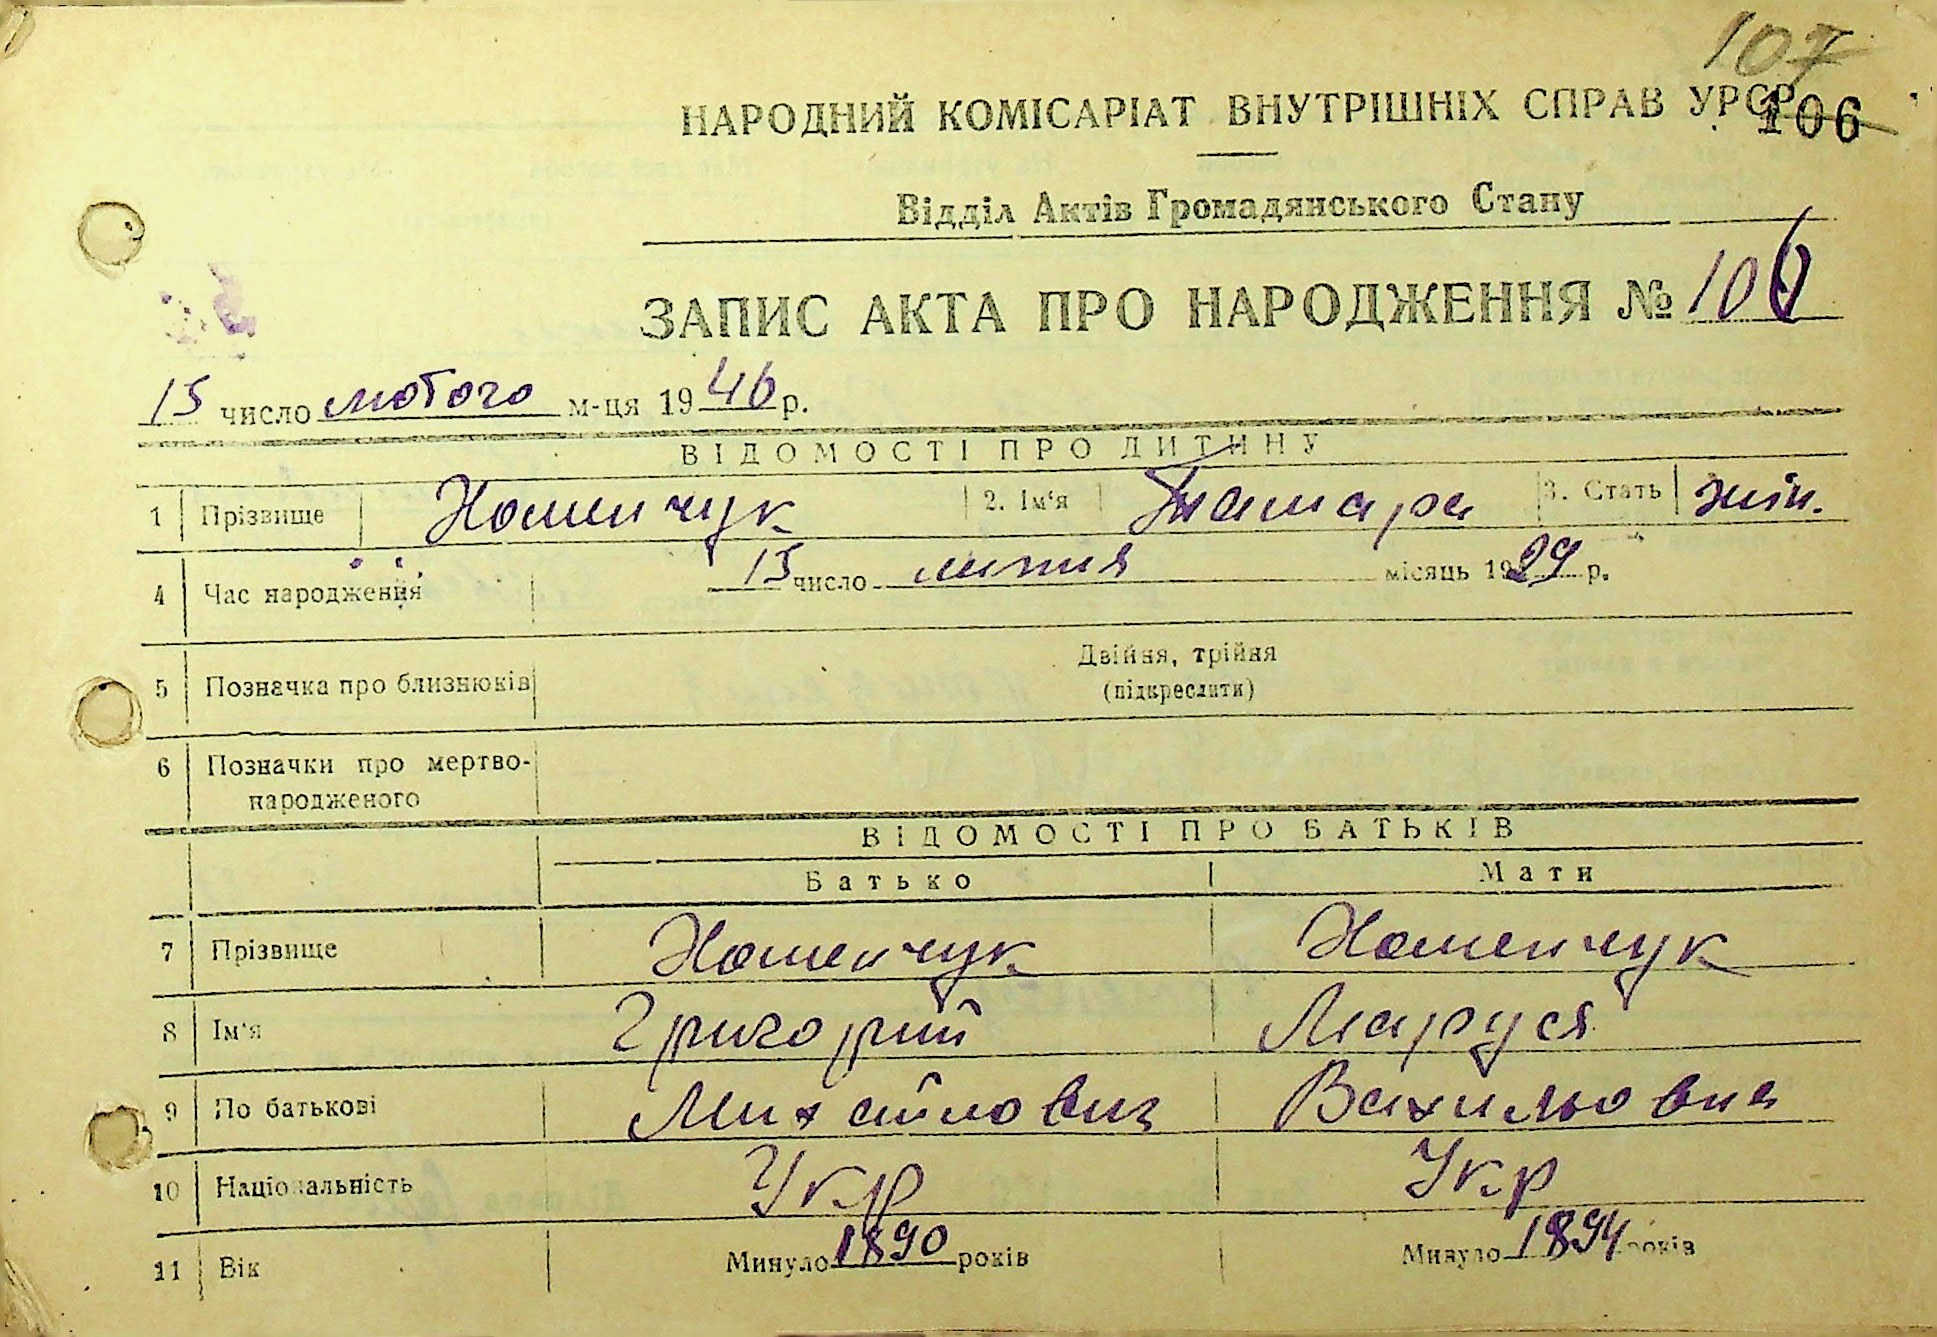 107
НАРОДНИЙ КОМІСАРІАТ ВНУТРІШНІХ СПРАВ УРСР
106
Відділ Актів Громадянського Стану
ЗАПИС АКТА ПРО НАРОДЖЕННЯ № 106
15 число лютого м-ця 1946 р.
ВІДОМОСТІ ПРО ДИТИНУ
1 Прізвище Хоменчук 2. Ім'я Тамара 3. Стать жін.
4 Час народження 15 число липня місяць 1929 р.
5 Позначка про близнюків Двійня, трійня
(підкреслити)
6 Позначки про мертво-
народженого
ВІДОМОСТІ ПРО БАТЬКІВ
Батько Мати
7 Прізвище Хоменчук Хоменчук
8 Ім'я Григорій Маруся
9 По батькові Михайлович
10 Національність Укр Укр
11 Вік Минуло 1890 років Минуло 1894 років